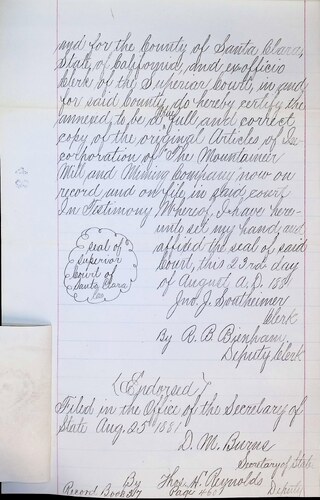 and for the County of Santa Clara,
State of California, and ex-officio
Clerk of the Superior Court, in and
for said County, do hereby certify the
annexed to be a full and correct
copy of the original Articles of In-
corporation of "The Mountaineer
Mill and Mining Company now on
record and on file in said court
In Testimony Whereof, I have here-
unto set my hand, and
affixed the seal of said
Court, this 23rd day
of August, A.D. 1881
seal of
superior
court of
Santa Clara
Co.
Jno. J.
Clerk
By R. B.
Deputy Clerk
(Endorsed)
Filed in the Office of the Secretary of
State Aug. 25th 1881
D. M. Burns
Secretary of State
By Thos. H. Reynolds Deputy
Record Book 87 Page 460